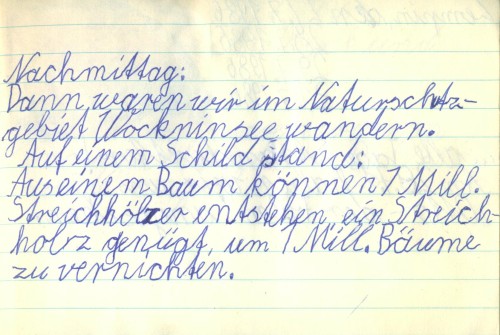 Nachmittag:
Dann waren wir im Naturschutz-
gebiet Wockninsee wandern.
Auf einem Schild stand:
Aus einem Baum können 1 Mill.
Streichhölzer entstehen, ein Streich-
holz genügt, um 1 Mill. Bäume
zu vernichten.